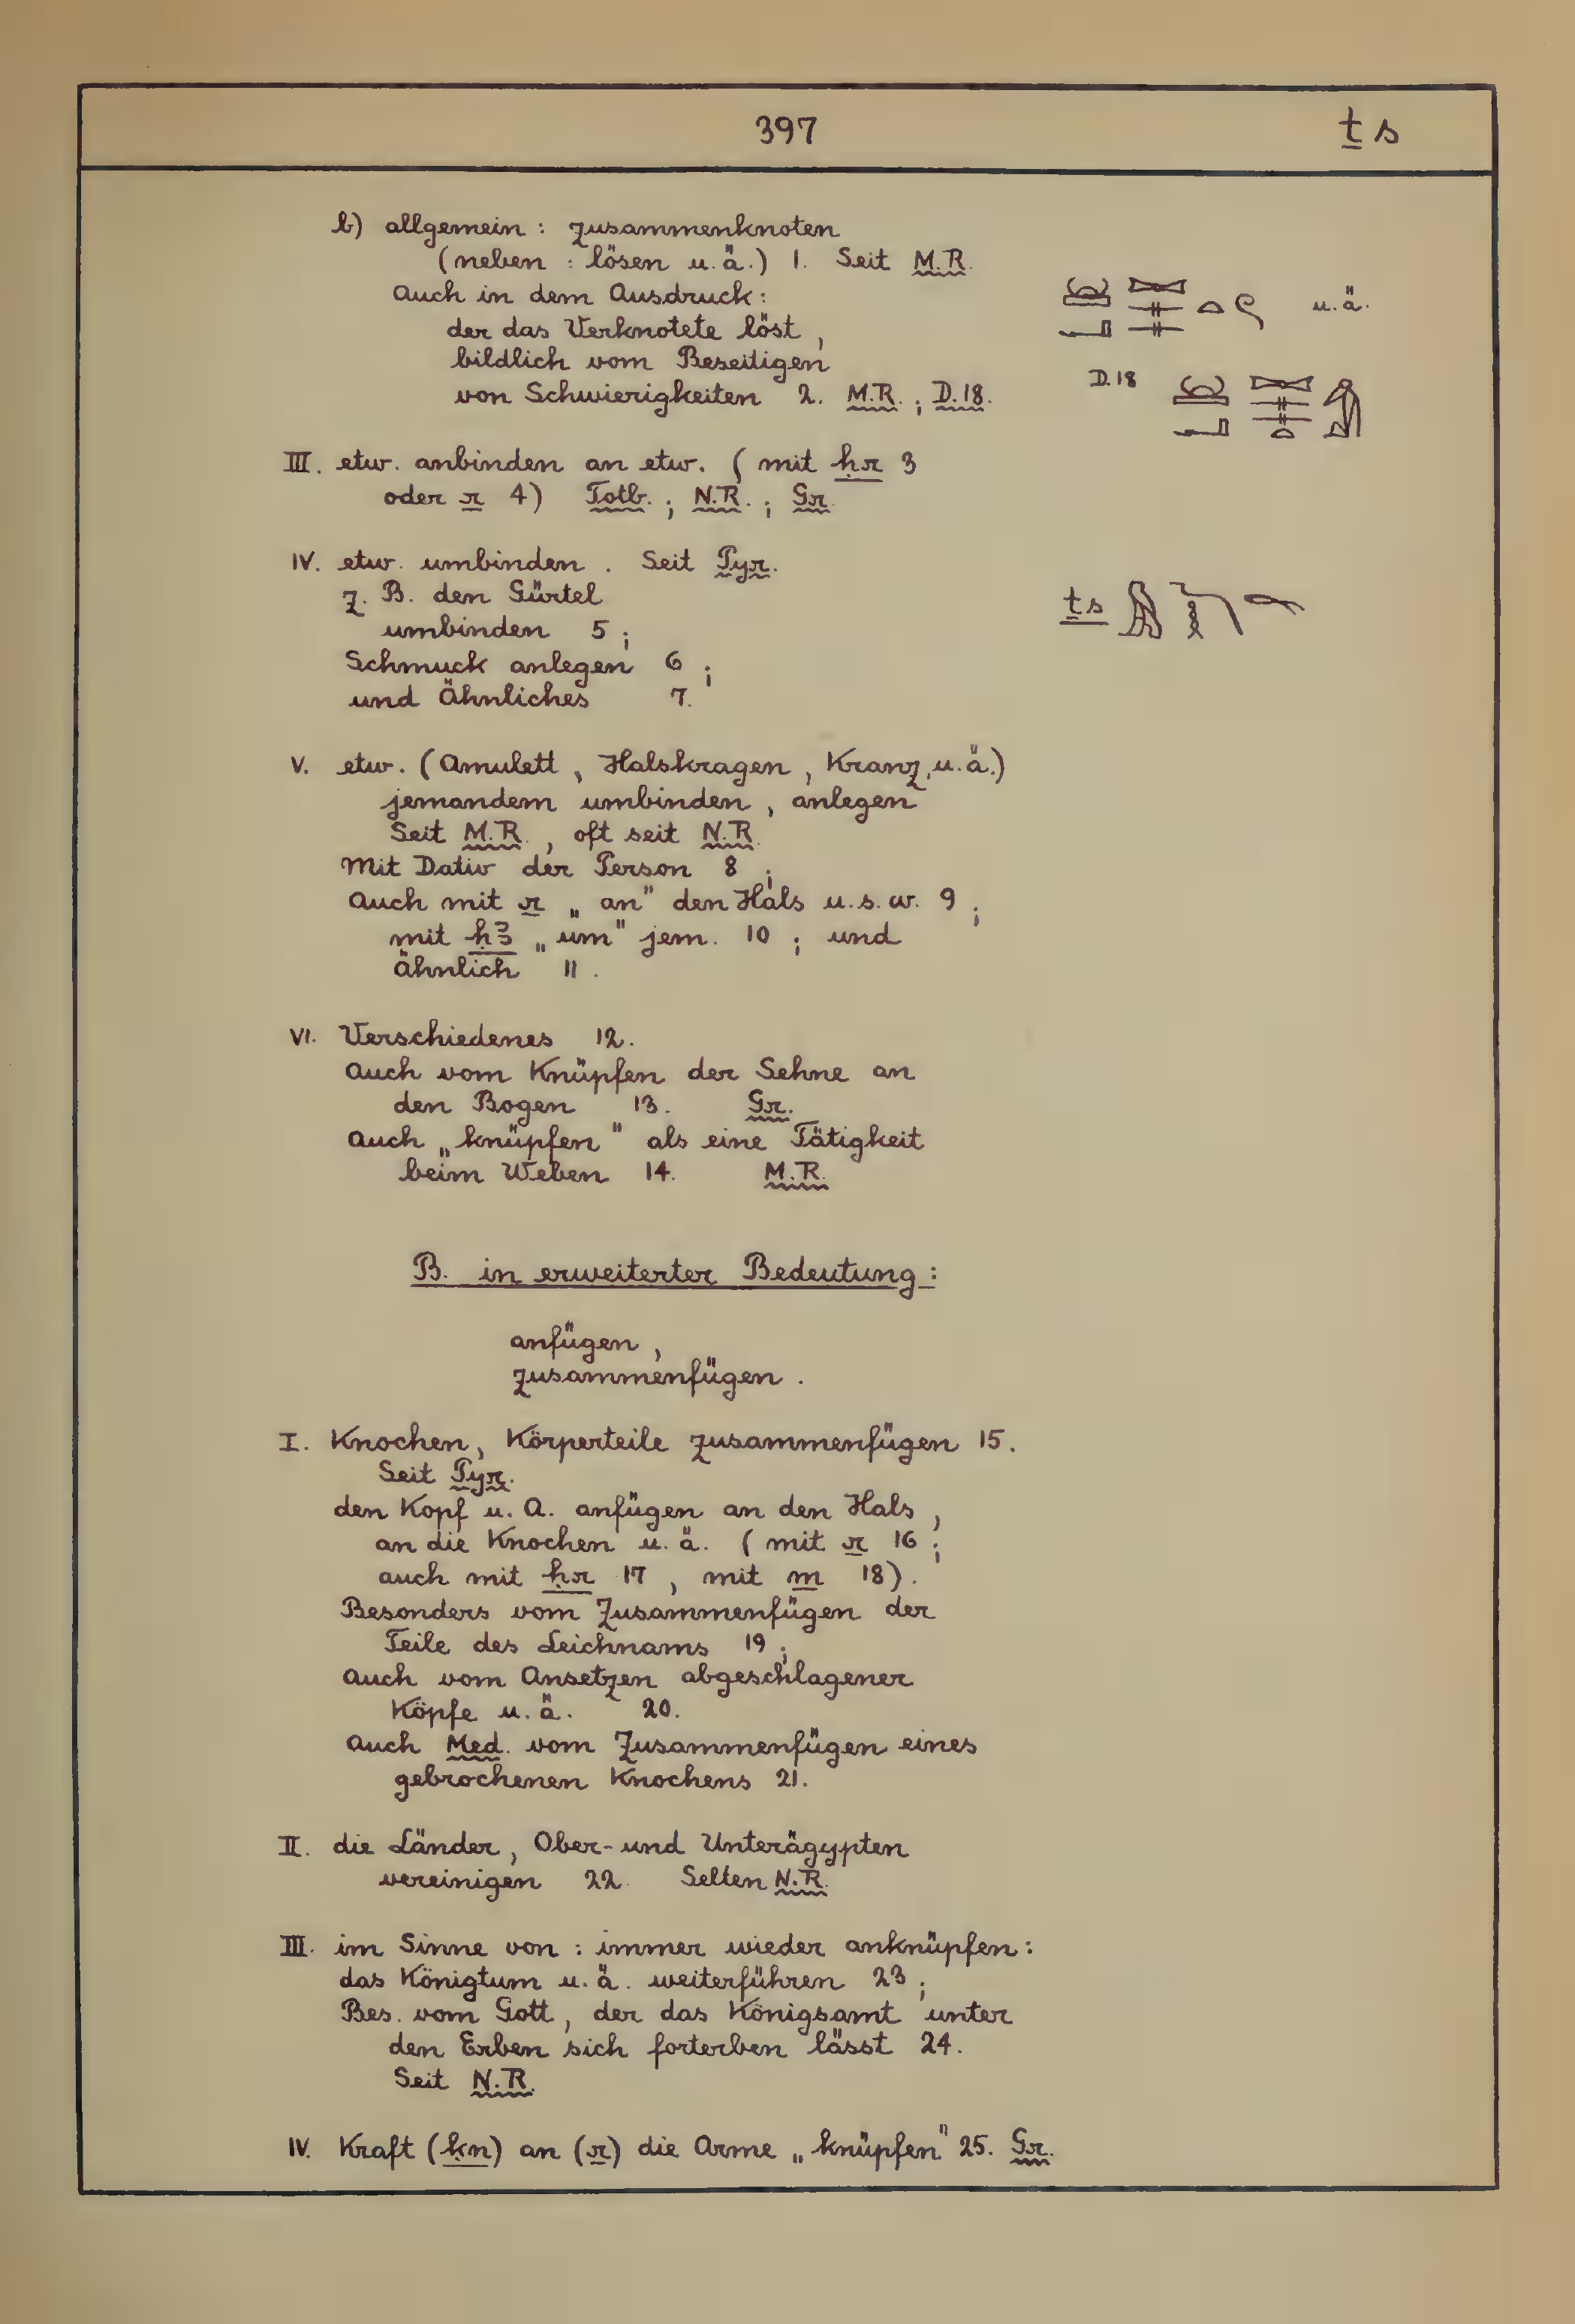 397 ṯs
b) allgemein : zusammenknoten
(neben : lösen u.ä.) 1. Seit M.R.
Auch in dem Ausdruck:
der das Verknotete löst, u.ä.
bildlich vom Beseitigen
von Schwierigkeiten 2. M.R.; D.18. D.18
III. etw. anbinden an etw. (mit ḥr 3
oder r 4) Totb.; N.R.; Gr.
IV. etw. umbinden. Seit Pyr.
z. B. den Gürtel ṯs
umbinden 5;
Schmuck anlegen 6;
und Ähnliches 7.
V. etw. (Amulett, Halskragen, Kranz, u.ä.)
jemandem umbinden, anlegen
Seit M.R., oft seit N.R.
Mit Dativ der Person 8;
Auch mit r „an" den Hals u.s.w. 9;
mit ḥꜣ „um" jem. 10; und
ähnlich 11.
VI. Verschiedenes 12.
Auch vom Knüpfen der Sehne an
den Bogen 13. Gr.
Auch „knüpfen" als eine Tätigkeit
beim Weben 14. M.R.
B. in erweiterter Bedeutung:
anfügen,
zusammenfügen.
I. Knochen, Körperteile zusammenfügen 15.
Seit Pyr.
den Kopf u. A. anfügen an den Hals,
an die Knochen u. ä. (mit r 16;
auch mit ḥr 17, mit m 18).
Besonders vom Zusammenfügen der
Teile des Leichnams 19;
Auch vom Ansetzen abgeschlagener
Köpfe u. ä. 20.
Auch Med. vom Zusammenfügen eines
gebrochenen Knochens 21.
II. die Länder, Ober- und Unterägypten
vereinigen 22. Selten N.R.
III. im Sinne von : immer wieder anknüpfen:
das Königtum u. ä. weiterführen 23;
Bes. vom Gott, der das Königsamt unter
den Erben sich forterben lässt 24.
Seit N.R.
IV. Kraft (ḳn) an (r) die Arme „knüpfen" 25. Gr.